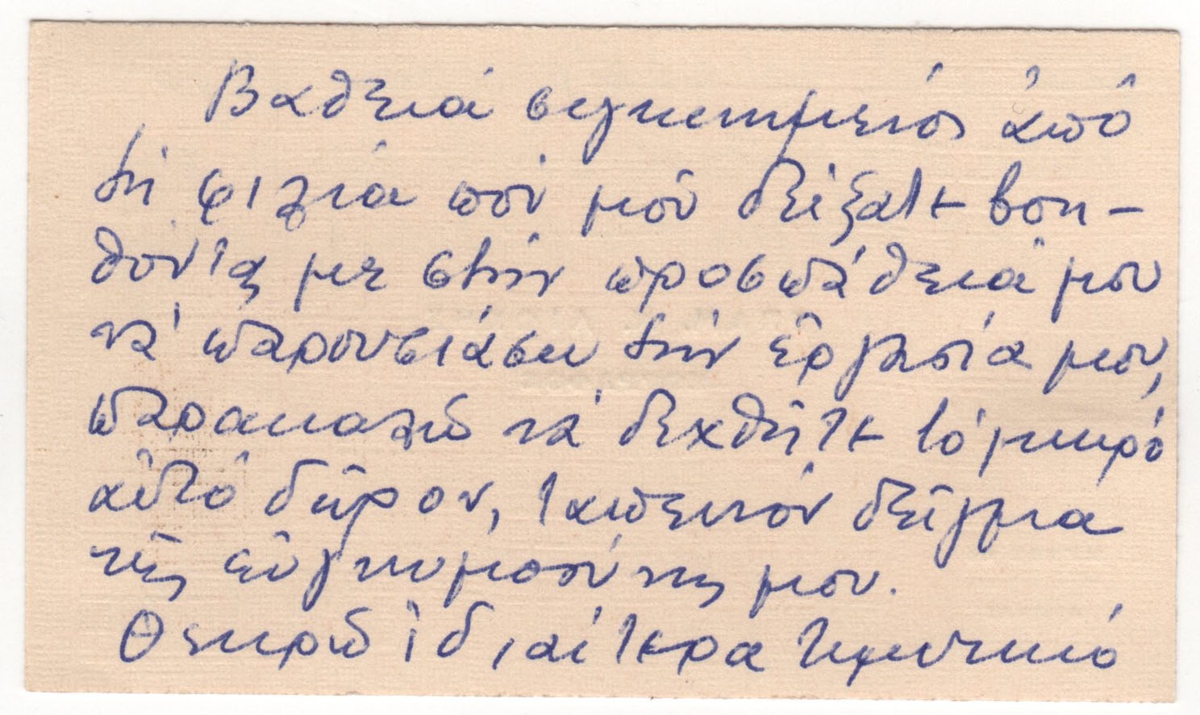 Βαθειά συγκινημένος ἀπό
τή φιλία πού μοῦ δείξατε βοη-
θόντας με στήν προσπάθειά μου
νά παρουσιάσω τήν ἐργασία μου,
παρακαλῶ νά δεχθῆτε τό μικρό
αὐτό δῶρον, ταπεινόν δεῖγμα
τῆς εὐγνωμοσύνης μου.
Θεωρῶ ἰδιαίτερα τιμητικό